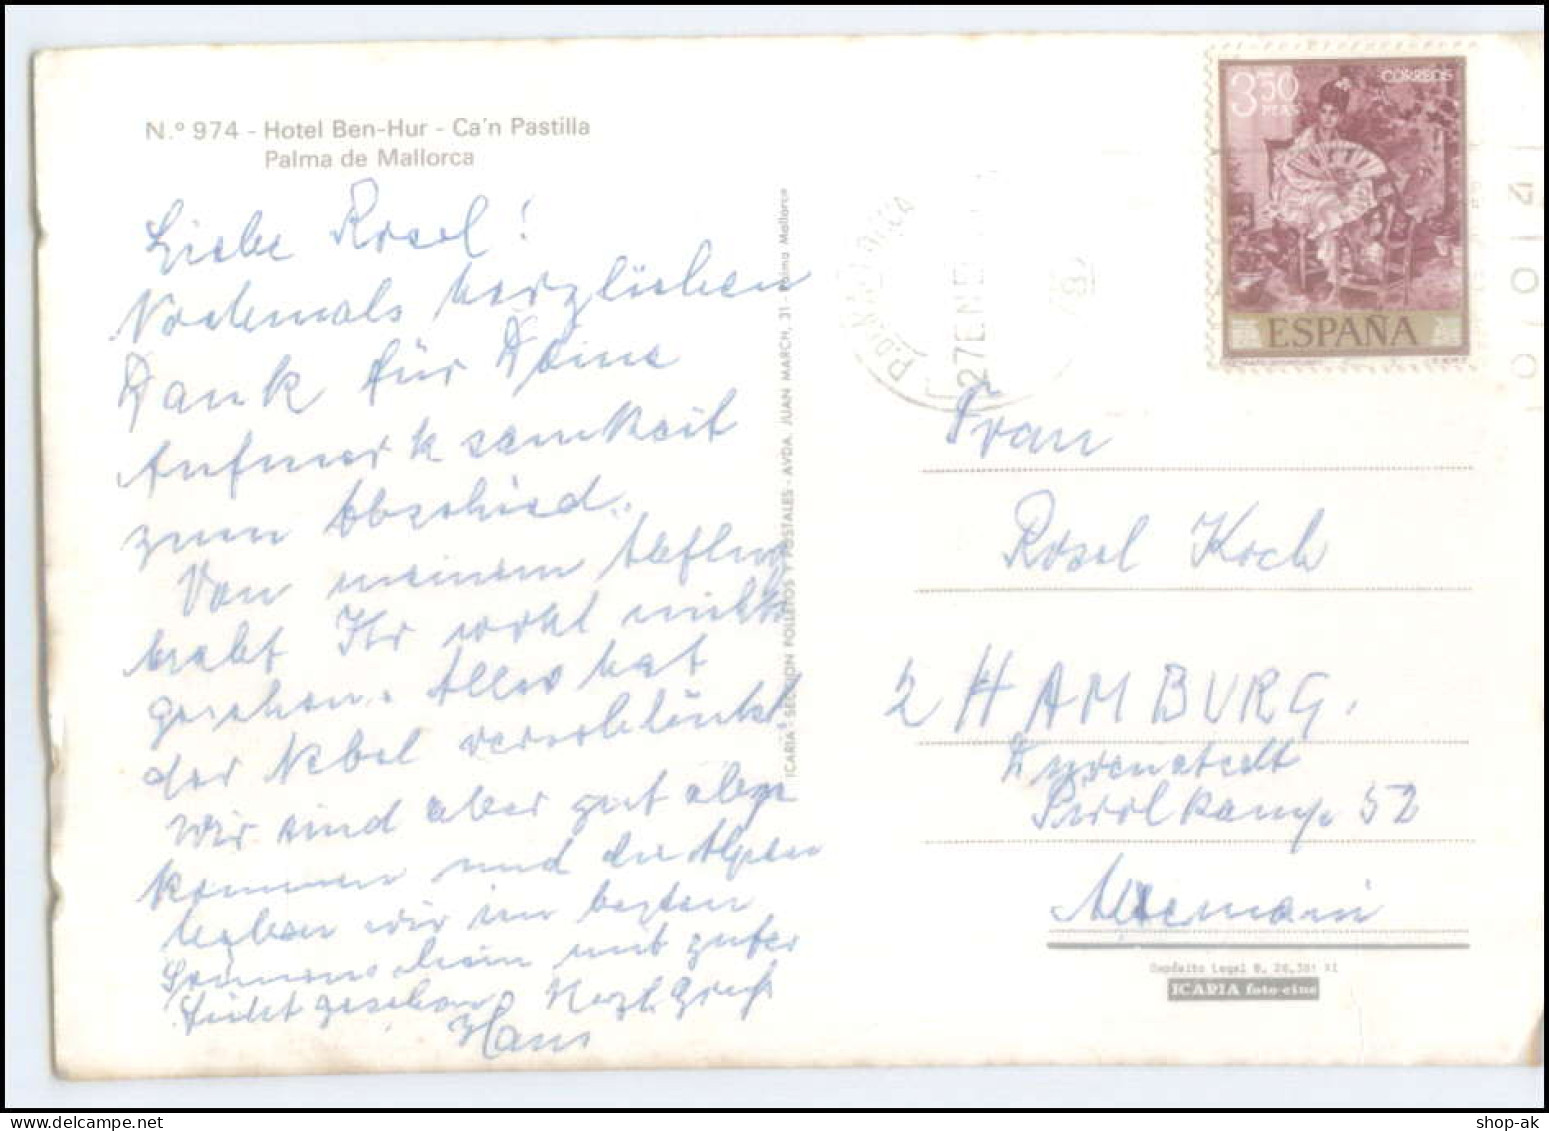 N.º 974 - Hotel Ben-Hur - Ca'n Pastilla
Palma de Mallorca
Liebe Rosel!
Nochmals herzlichen
Dank für Deine
Aufmerksamkeit
zum Abschied.
Von meinem Abflug
habt Ihr wohl nichts
gesehen. Alles hat
der Nebel verschluckt
Wir sind aber gut ange
kommen und die Alpen
haben wir im besten
Sonnenschein mit guter
Sicht gesehen. Herzl. Gruß
Hans
ICARIA - SECCION FOLLETOS Y POSTALES - AVDA. JUAN MARCH, 31 - Palma Mallorca
3,50
PTAS
CORREOS
ESPAÑA
27 ENE
Frau
Rosel Koch
2 HAMBURG.
Pirolkamp 52
Alemania
Depósito Legal B.
ICARIA foto-cine
shop-ak